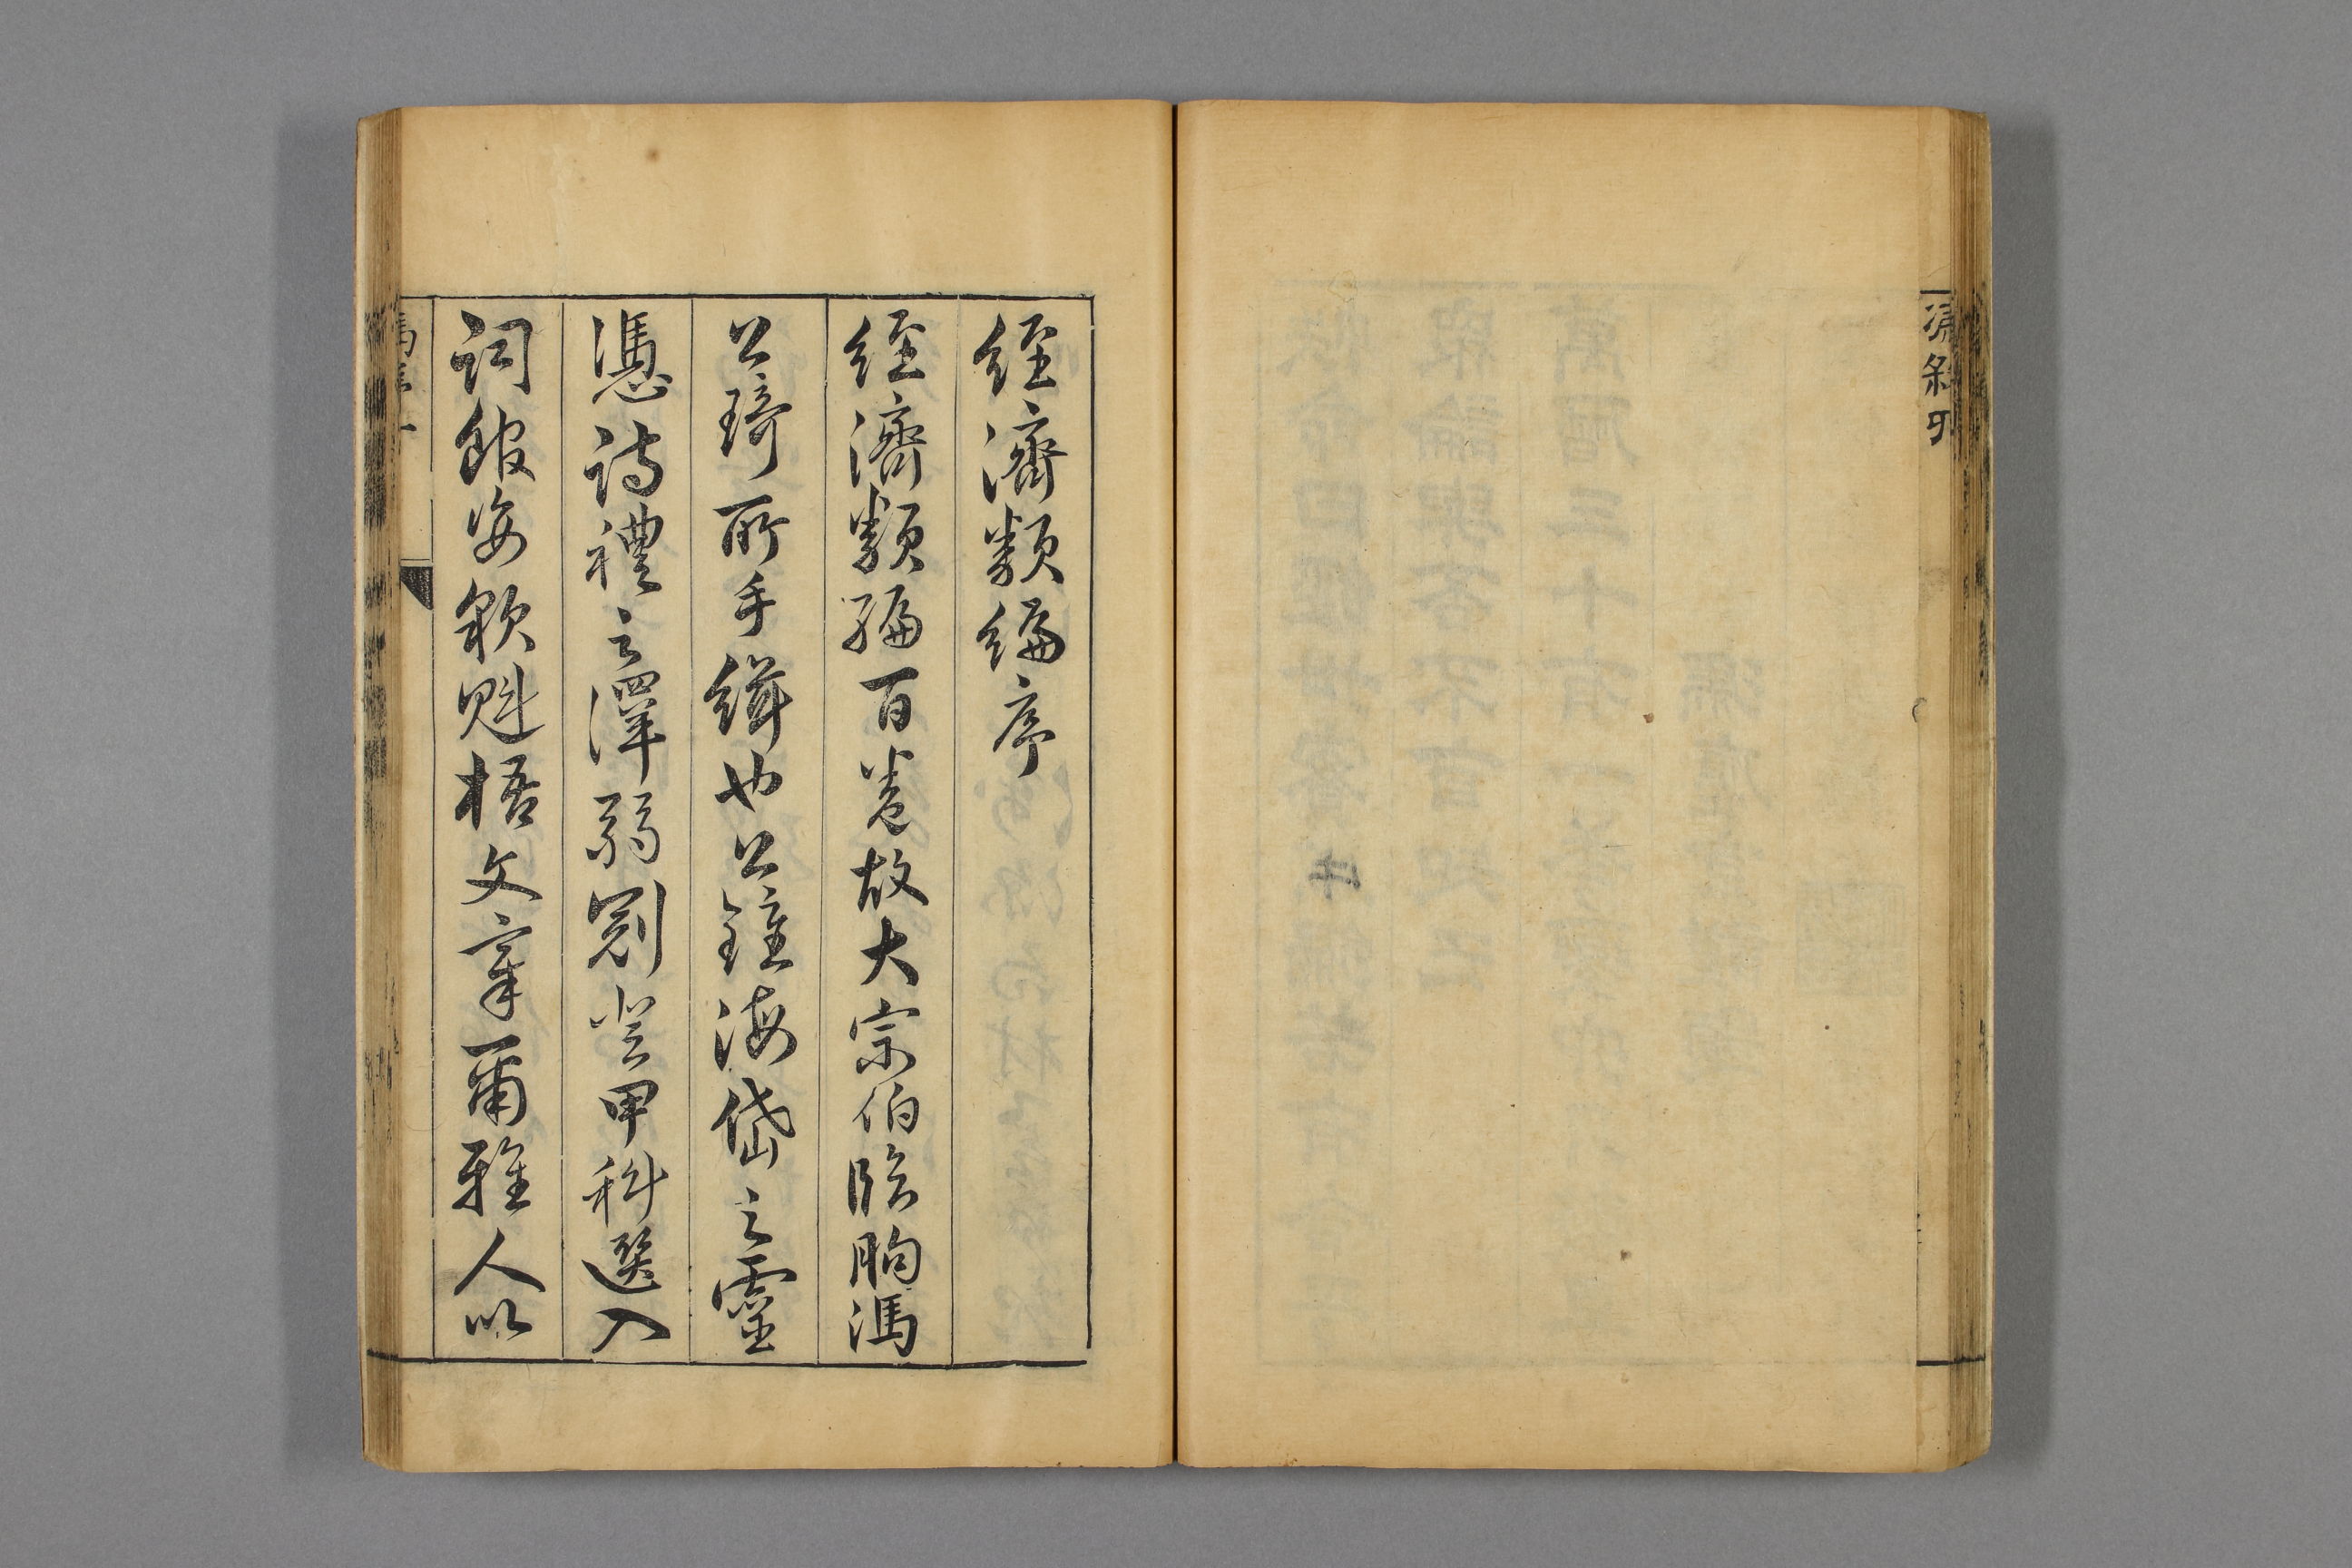 經濟類編序
經濟類編百卷故大宗伯臨朐馮
公琦所手緝也公鍾海岱之靈
憑詩禮之澤弱冠登甲科選入
詞館姿貌魁梧文章爾雅人以